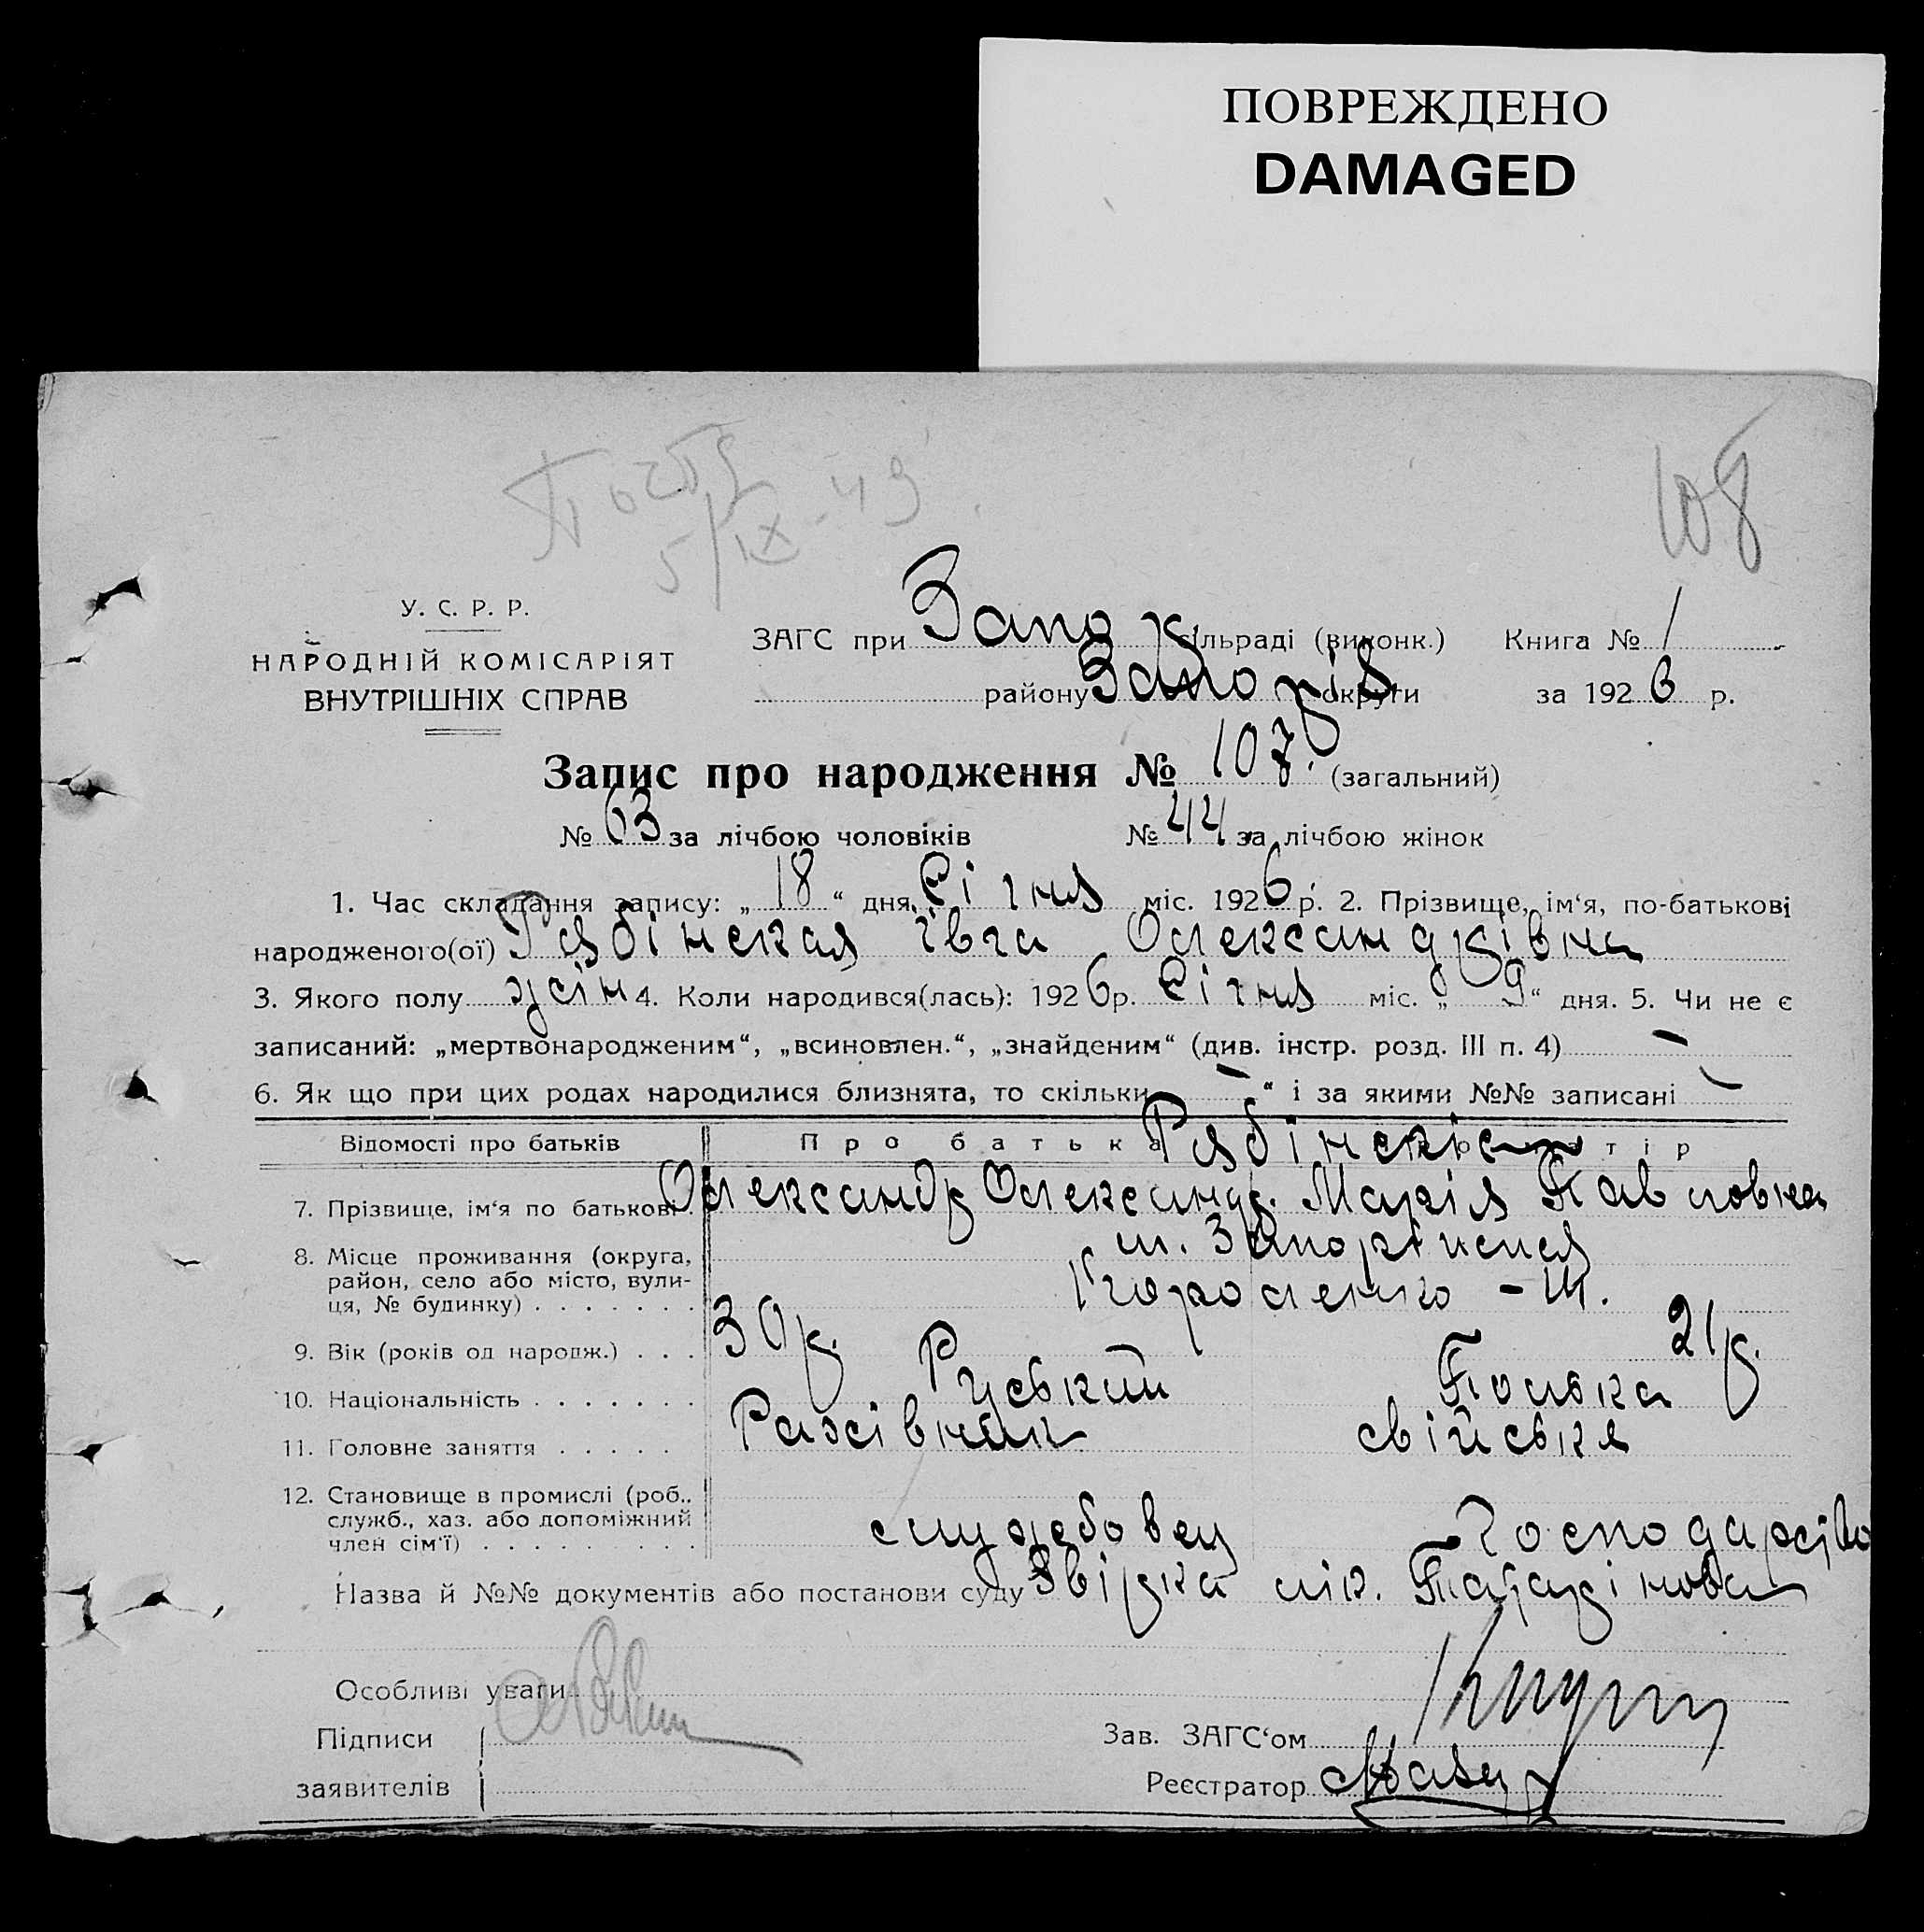 ПОВРЕЖДЕНО
DAMAGED
5/IX-49
108
У. С. Р. Р.
НАРОДНІЙ КОМІСАРІЯТ
ВНУТРІШНІХ СПРАВ
ЗАГС при Запор сільраді (виконк.) Книга № 1
району Запоріз округи за 1926 р.
Запис про народження № 107. (загальний)
№ 63 за лічбою чоловіків № 44 за лічбою жінок
1. Час складання запису: „18“ дня Січня міс. 1926 р. 2. Прізвище, ім‘я, по-батькові
народженого(ої) Рябінская Івга Олександрівна
3. Якого полу жін 4. Коли народився(лась): 1926 р. Січня міс. „9“ дня. 5. Чи не є
записаний: „мертвонародженим“, „всиновлен.“, „знайденим“ (див. інстр. розд. III п. 4) —
6. Як що при цих родах народилися близнята, то скільки — “ і за якими №№ записані —
Відомості про батьків Про батька Рябінскіе матір
7. Прізвище, ім‘я по батькові. Олександр Олександр. Марія Павловна
8. Місце проживання (округа, м. Запоріжжя
район, село або місто, вули-
ця, № будинку) . . . . . . . Короленко
9. Вік (років од народж.) . . . 30 р. 21 р.
10. Національність . . . . . . . Руський Полька
11. Головне заняття . . . . . Рахівник свійське
12. Становище в промислі (роб.,
служб., хаз. або допоміжний
член сім‘ї) . . . . . . . . . службовец господарство
Назва й №№ документів або постанови суду Звірка лік.
Особливі уваги
Підписи
заявителів
Зав. ЗАГС‘ом
Реєстратор